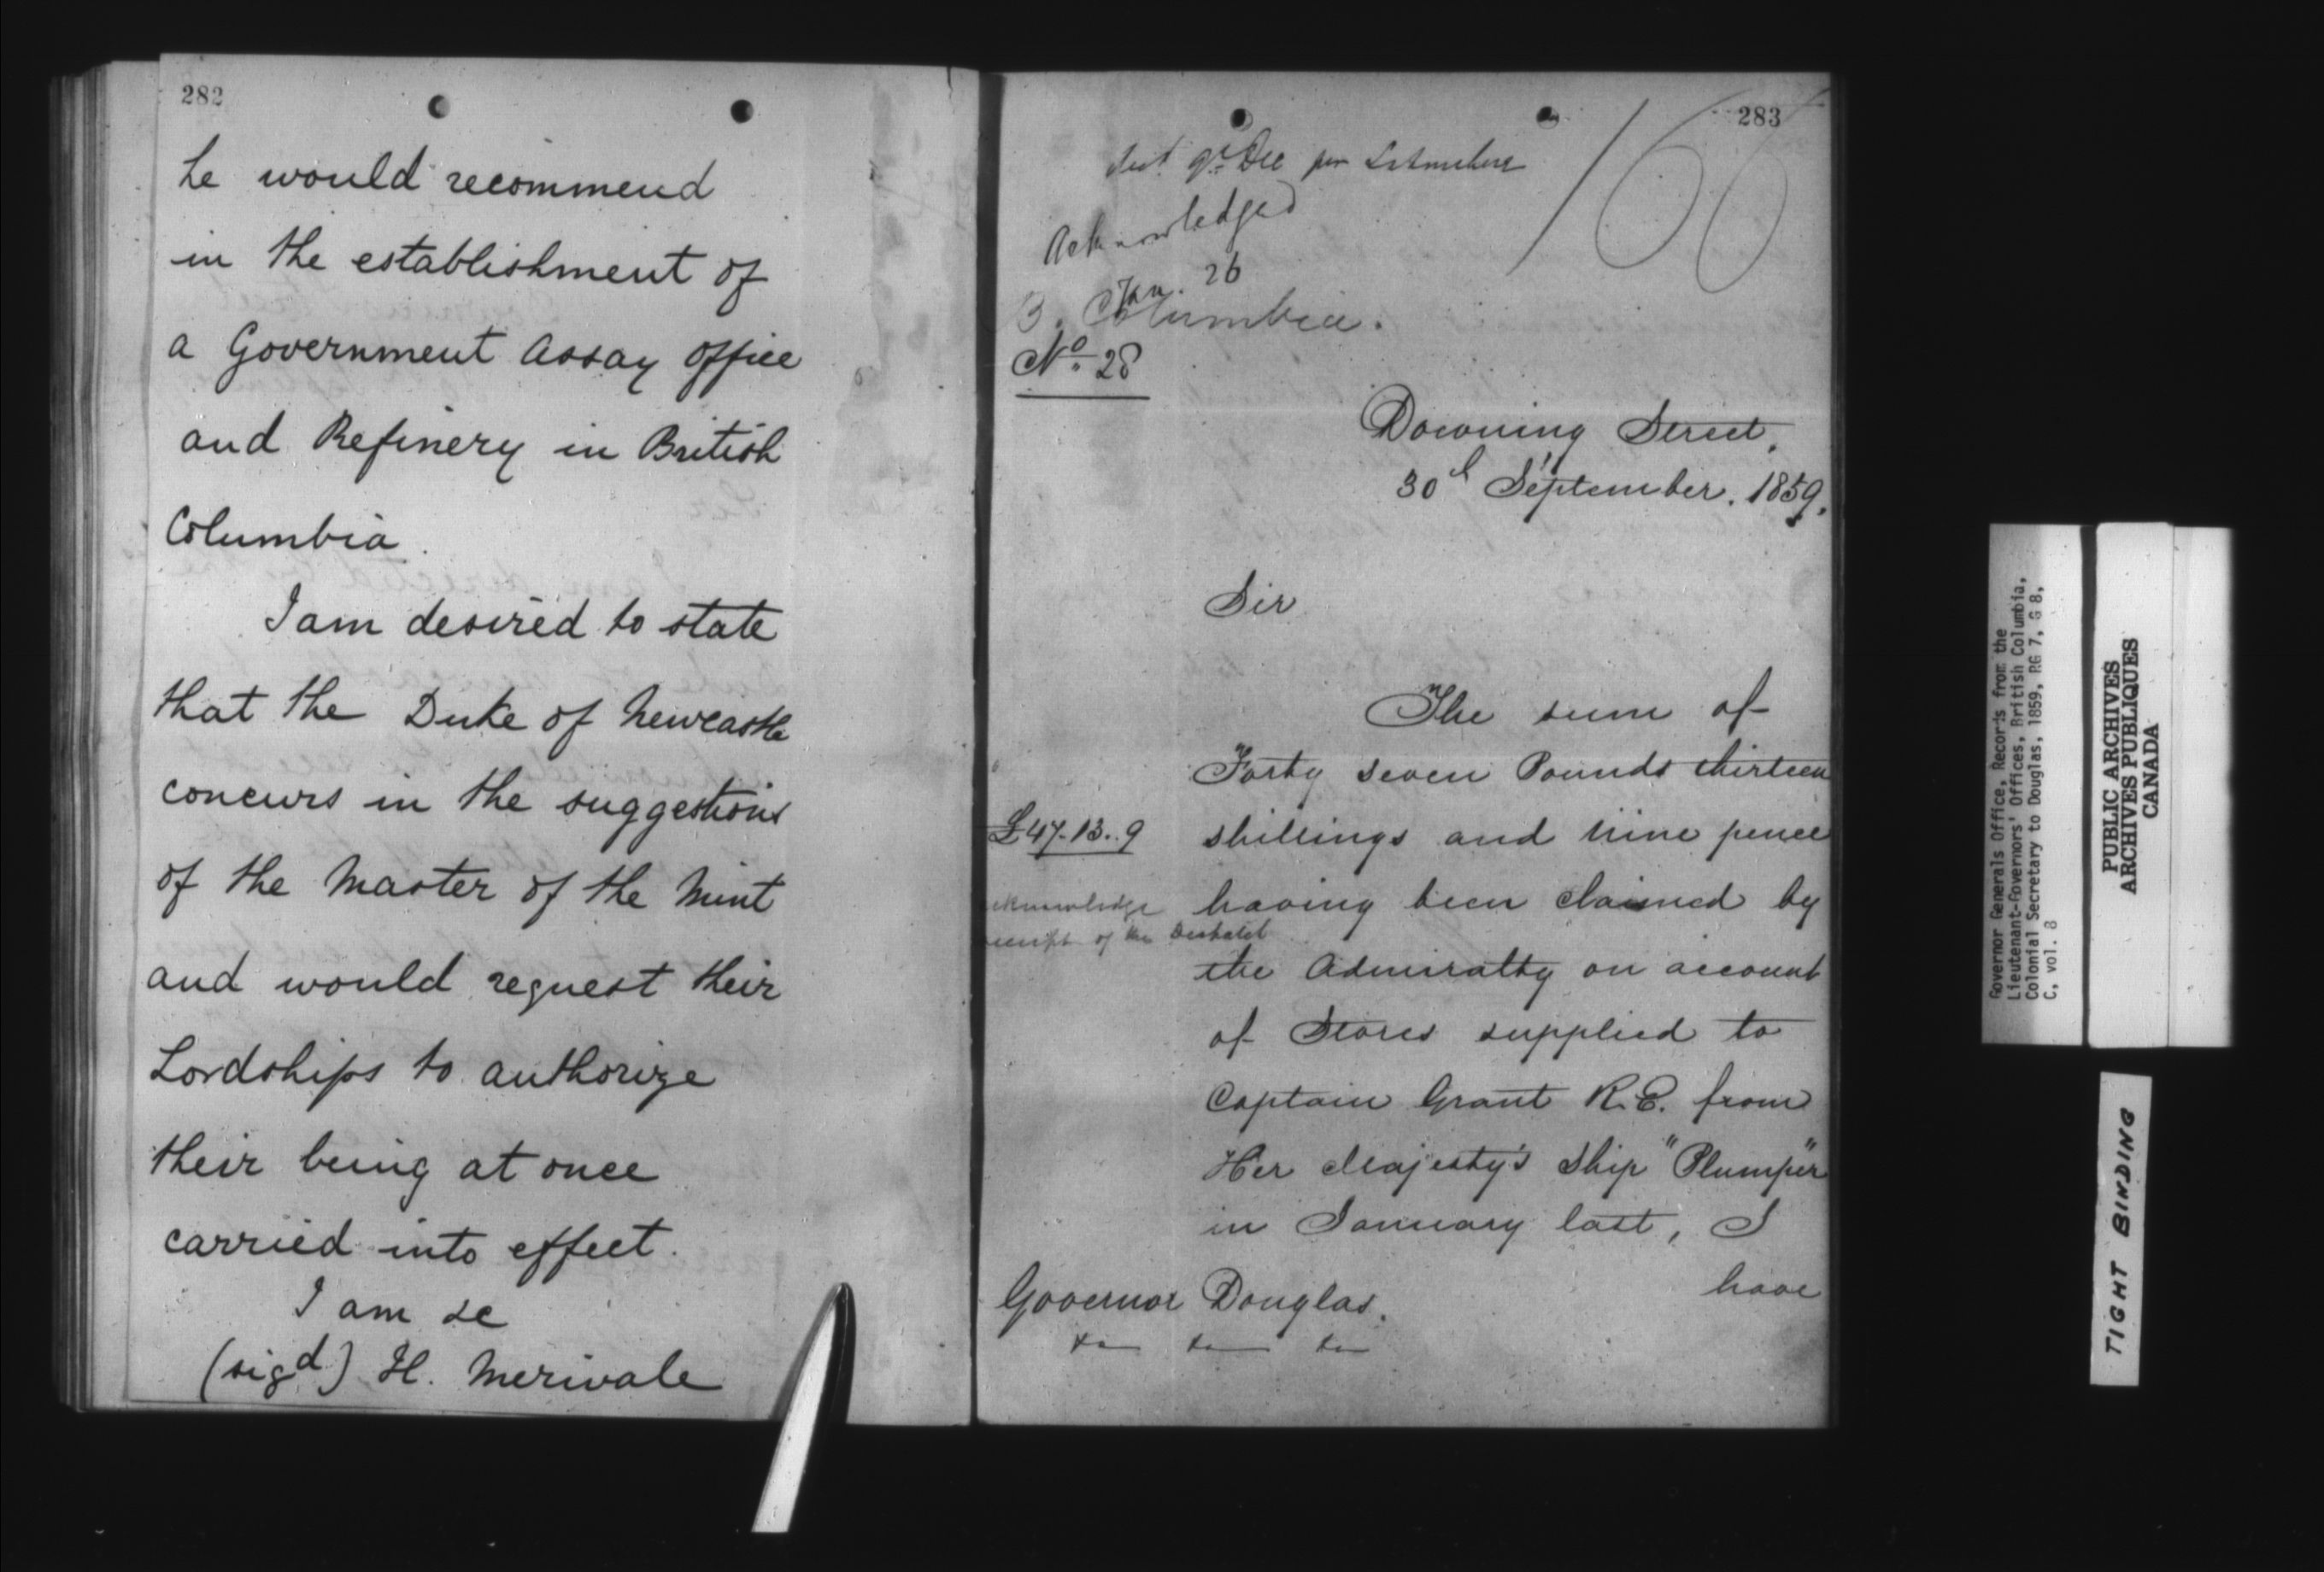 282
he would recommend
in the establishment of
a Government Assay Office
and Refinery in British
Columbia.
I am desired to state
that the Duke of Newcastle
concurs in the suggestions
of the Master of the Mint
and would request their
Lordships to authorize
their being at once
carried into effect.
I am &c
(sigd) H. Merivale
283
160
9th Dec per
Acknowledged
Jan. 26
B. Columbia.
No. 28
Downing Street,
30th September. 1859.
Sir
The sum of
Forty seven Pounds thirteen
£47.13..9 shillings and nine pence
having been claimed by
acknowledge
receipt of the Despatch
the Admiralty on account
of Stores supplied to
Captain Grant R.E. from
Her Majesty's Ship "Plumper"
in January last, I
have
Governor Douglas.
&c &c &c
Governor Generals Office, Records from the
Lieutenant-Governors' Offices, British Columbia,
Colonial Secretary to Douglas, 1859, RG 7, G 8,
C, vol. 8
PUBLIC ARCHIVES
ARCHIVES PUBLIQUES
CANADA
TIGHT BINDING